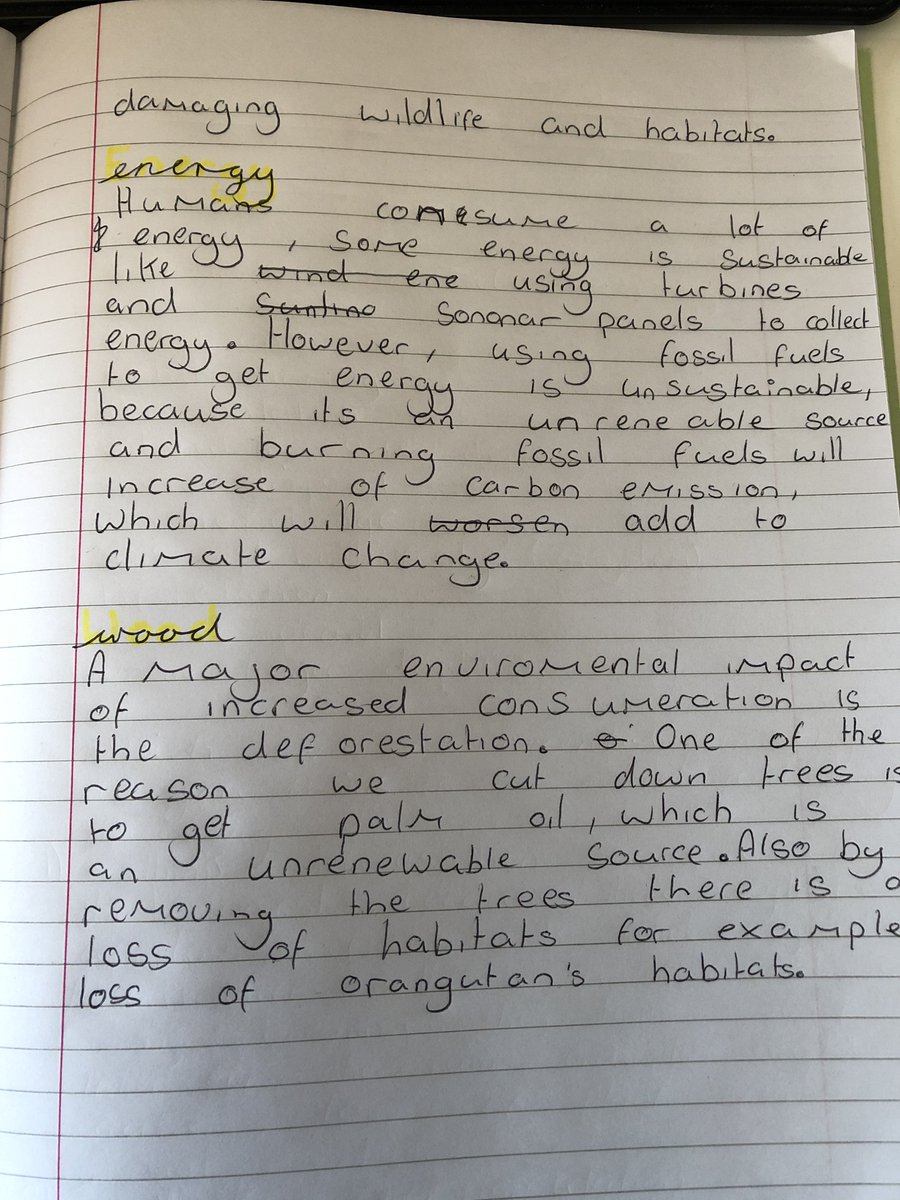 damaging wildlife and habitats.
energy
Humans consume a lot of
energy, some energy is sustainable
like wind ene using turbines
and sononar panels to collect
energy. However, using fossil fuels
to get energy is unsustainable,
because its an unreneable source
and burning fossil fuels will
increase of carbon emission,
which will worsen add to
climate change.
wood
A major enviromental impact
of increased consumeration is
the deforestation. One of the
reason we cut down trees is
to get palm oil, which is
an unrenewable source. Also by
removing the trees there is a
loss of habitats for example
loss of orangutan's habitats.